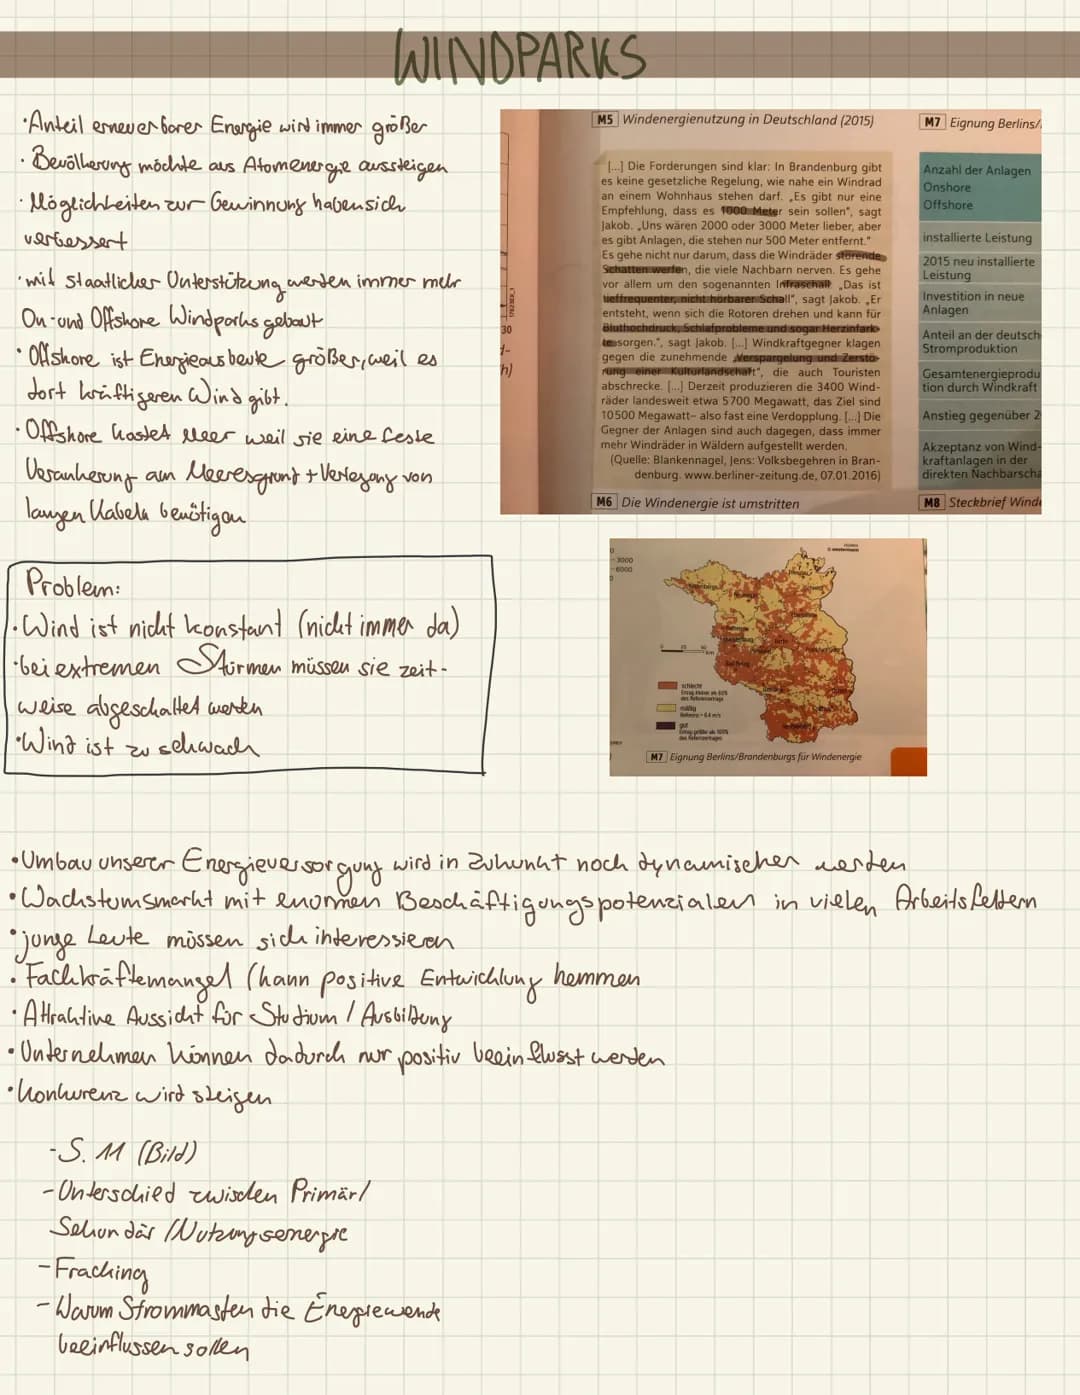 WINDPARKS
• Anteil erneuerbarer Energie wird immer größer
• Bevölkerung möchte aus Atomenergie aussteigen
• Möglichkeiten zur Gewinnung haben sich
verbessert
• mit staatlicher Unterstützung werden immer mehr
On- und Offshore Windparks gebaut
• Offshore ist Energieausbeute größer, weil es
dort kräftigeren Wind gibt.
• Offshore kostet Meer weil sie eine feste
Verankerung am Meeresgrunt + Verlegung von
langen Kabeln benötigen
Problem:
• Wind ist nicht konstant (nicht immer da)
• bei extremen Stürmen müssen sie zeit-
weise abgeschaltet werden
• Wind ist zu schwach
M5 Windenergienutzung in Deutschland (2015)
[...] Die Forderungen sind klar: In Brandenburg gibt
es keine gesetzliche Regelung, wie nahe ein Windrad
an einem Wohnhaus stehen darf. „Es gibt nur eine
Empfehlung, dass es 1000 Meter sein sollen", sagt
Jakob. „Uns wären 2000 oder 3000 Meter lieber, aber
es gibt Anlagen, die stehen nur 500 Meter entfernt."
Es gehe nicht nur darum, dass die Windräder störende
Schatten werfen, die viele Nachbarn nerven. Es gehe
vor allem um den sogenannten Infraschall. „Das ist
tieffrequenter, nicht hörbarer Schall", sagt Jakob. „Er
entsteht, wenn sich die Rotoren drehen und kann für
Bluthochdruck, Schlafprobleme und sogar Herzinfark-
te sorgen.", sagt Jakob. [...] Windkraftgegner klagen
gegen die zunehmende „Verspargelung und Zerstö-
rung einer Kulturlandschaft", die auch Touristen
abschrecke. [...] Derzeit produzieren die 3400 Wind-
räder landesweit etwa 5700 Megawatt, das Ziel sind
10500 Megawatt– also fast eine Verdopplung. [...] Die
Gegner der Anlagen sind auch dagegen, dass immer
mehr Windräder in Wäldern aufgestellt werden.
(Quelle: Blankennagel, Jens: Volksbegehren in Bran-
denburg. www.berliner-zeitung.de, 07.01.2016)
M6 Die Windenergie ist umstritten
30
h)
M7 Eignung Berlins/
Anzahl der Anlagen
Onshore
Offshore
installierte Leistung
2015 neu installierte
Leistung
Investition in neue
Anlagen
Anteil an der deutsch
Stromproduktion
Gesamtenergieprodu
tion durch Windkraft
Anstieg gegenüber 2
Akzeptanz von Wind-
kraftanlagen in der
direkten Nachbarscha
M8 Steckbrief Wind
3000
6000
schlecht
mäßig
gut
M7 Eignung Berlins/Brandenburgs für Windenergie
• Umbau unserer Energieversorgung wird in Zukunkt noch dynamischer werden
• Wachstumsmarkt mit enormen Beschäftigungspotenzialen in vielen Arbeitsfeldern
• junge Leute müssen sich interessieren
• Fachkräftemangel (kann positive Entwicklung hemmen
• Attraktive Aussicht für Studium / Ausbildung
• Unternehmen können dadurch nur positiv beeinflusst werden
• Konkurenz wird steigen
- S. 11 (Bild)
- Unterschied zwischen Primär/
Sekundär /Nutzungsenergie
- Fracking
- Warum Strommasten die Energiewende
beeinflussen sollen